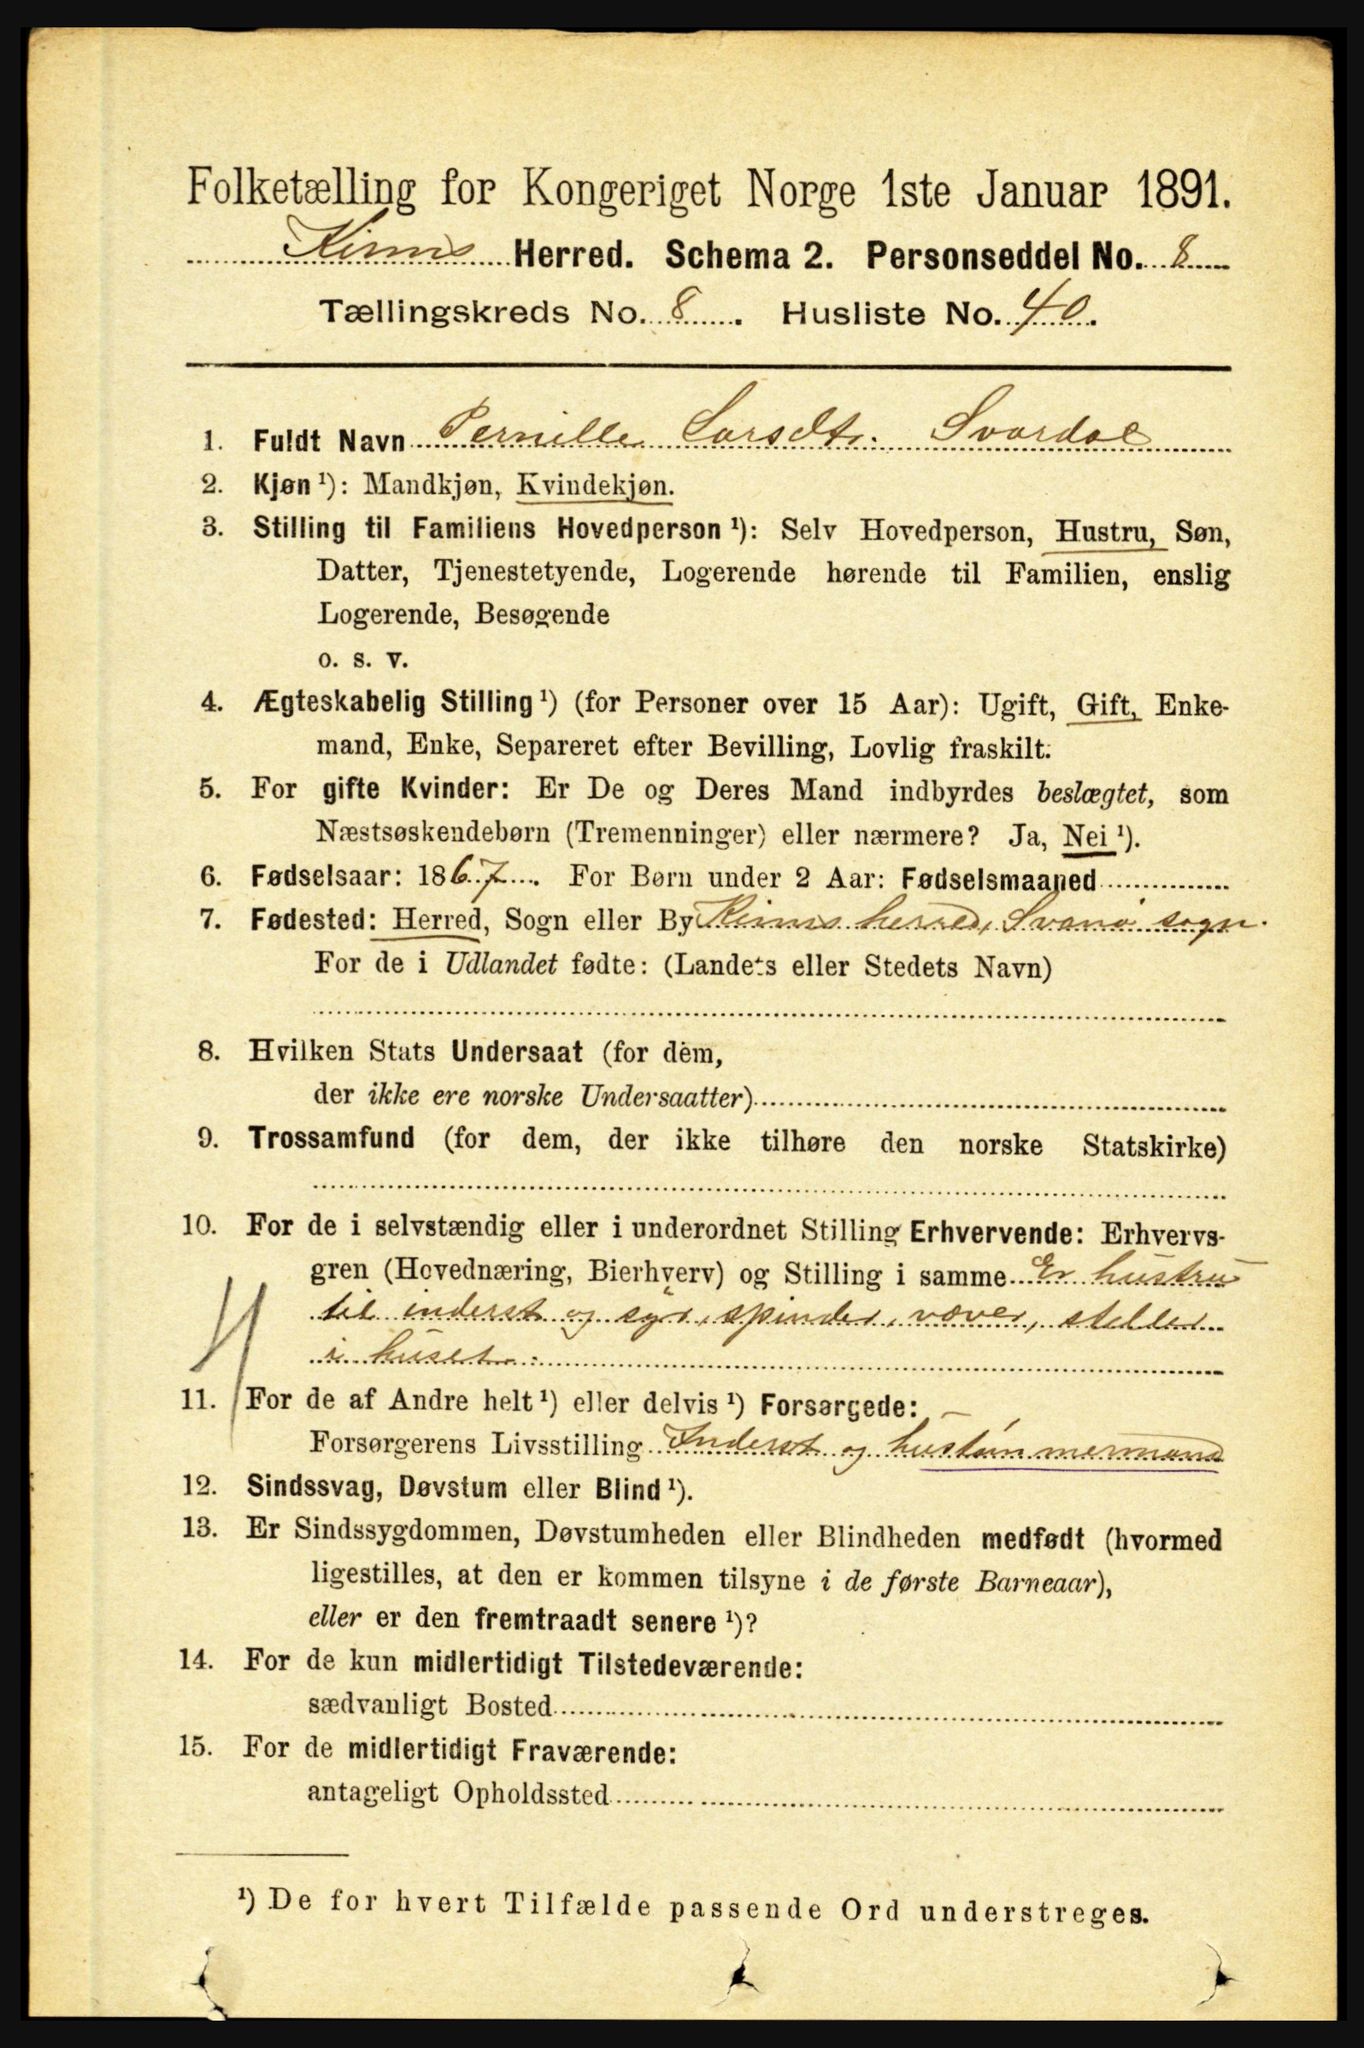 Folketælling for Kongeriget Norge 1ste Januar 1891.
Kinns Herred. Schema 2. Personseddel No. 8
Tællingskreds No. 8. Husliste No. 40.
1. Fuldt Navn Pernille Larsdtr. Svardal
2. Kjøn ¹): Mandkjøn, Kvindekjøn.
3. Stilling til Familiens Hovedperson ¹): Selv Hovedperson, Hustru, Søn,
Datter, Tjenestetyende, Logerende hørende til Familien, enslig
Logerende, Besøgende
o. s. v.
4. Ægteskabelig Stilling ¹) (for Personer over 15 Aar): Ugift, Gift, Enke-
mand, Enke, Separeret efter Bevilling, Lovlig fraskilt.
5. For gifte Kvinder: Er De og Deres Mand indbyrdes beslægtet, som
Næstsøskendebørn (Tremenninger) eller nærmere? Ja, Nei ¹).
6. Fødselsaar: 1867. For Børn under 2 Aar: Fødselsmaaned
7. Fødested: Herred, Sogn eller By Kinns herred, Svanø sogn.
For de i Udlandet fødte: (Landets eller Stedets Navn)
8. Hvilken Stats Undersaat (for dem,
der ikke ere norske Undersaatter)
9. Trossamfund (for dem, der ikke tilhøre den norske Statskirke)
10. For de i selvstændig eller i underordnet Stilling Erhvervende: Erhvervs-
gren (Hovednæring, Bierhverv) og Stilling i samme Er hustru
til inderst og syr, spinder, væver, steller
i huset.
11. For de af Andre helt ¹) eller delvis ¹) Forsørgede:
Forsørgerens Livsstilling Inderst og hustømmermand
12. Sindssvag, Døvstum eller Blind ¹).
13. Er Sindssygdommen, Døvstumheden eller Blindheden medfødt (hvormed
ligestilles, at den er kommen tilsyne i de første Barneaar),
eller er den fremtraadt senere ¹)?
14. For de kun midlertidigt Tilstedeværende:
sædvanligt Bosted
15. For de midlertidigt Fraværende:
antageligt Opholdssted
¹) De for hvert Tilfælde passende Ord understreges.